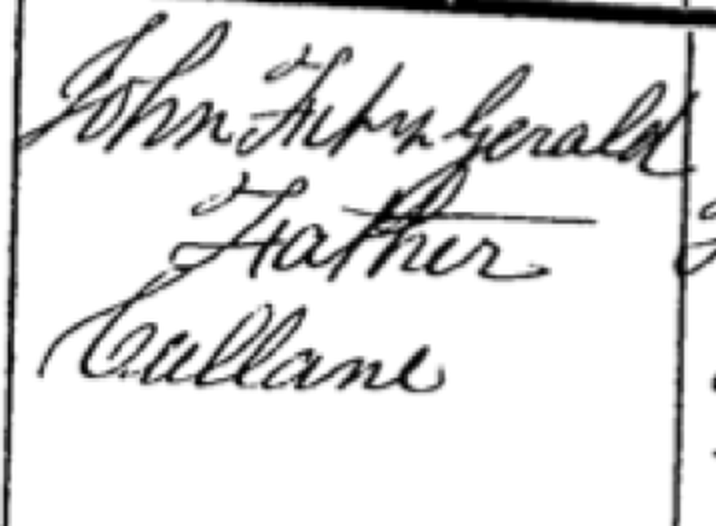 John FitzGerald
Father
Cullane